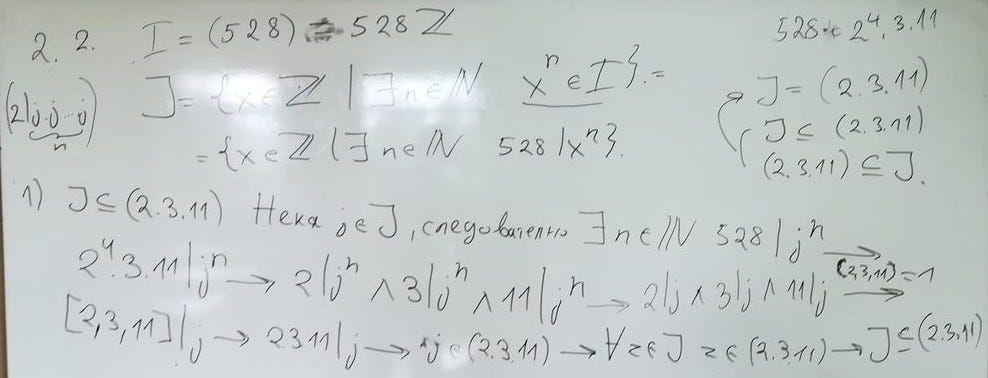 2. 2. I = (528) = 528 ℤ
528 = 2⁴.3.11
(2|j.j...j)
n
J = {x∈ℤ | ∃n∈ℕ xⁿ∈I}. =
= {x∈ℤ | ∃n∈ℕ 528|xⁿ}.
J = (2.3.11)
J ⊆ (2.3.11)
(2.3.11) ⊆ J.
1) J ⊆ (2.3.11) Нека j∈J, следователно ∃n∈ℕ 528|jⁿ →
2⁴.3.11|jⁿ → 2|jⁿ ∧ 3|jⁿ ∧ 11|jⁿ → 2|j ∧ 3|j ∧ 11|j (2,3,11)=1 →
[2,3,11]|j → 2.3.11|j → j∈(2.3.11) → ∀z∈J z∈(2.3.11) → J⊆(2.3.11)